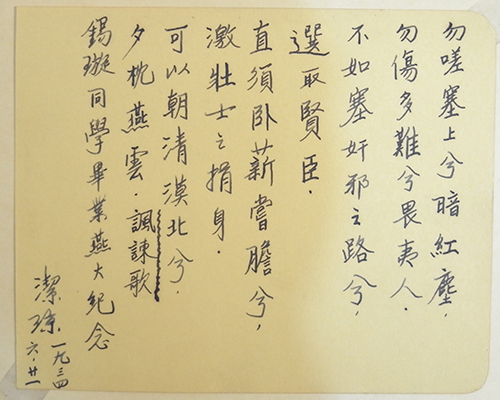 勿嗟塞上兮暗紅塵，
勿傷多難兮畏夷人．
不如塞奸邪之路兮，
選取賢臣．
直須卧薪嘗膽兮，
激壯士之捐身．
可以朝清漠北兮．
夕枕燕雲．諷諫歌
錫璇同學畢業燕大紀念
潔瓊．一九三四
六．廿一